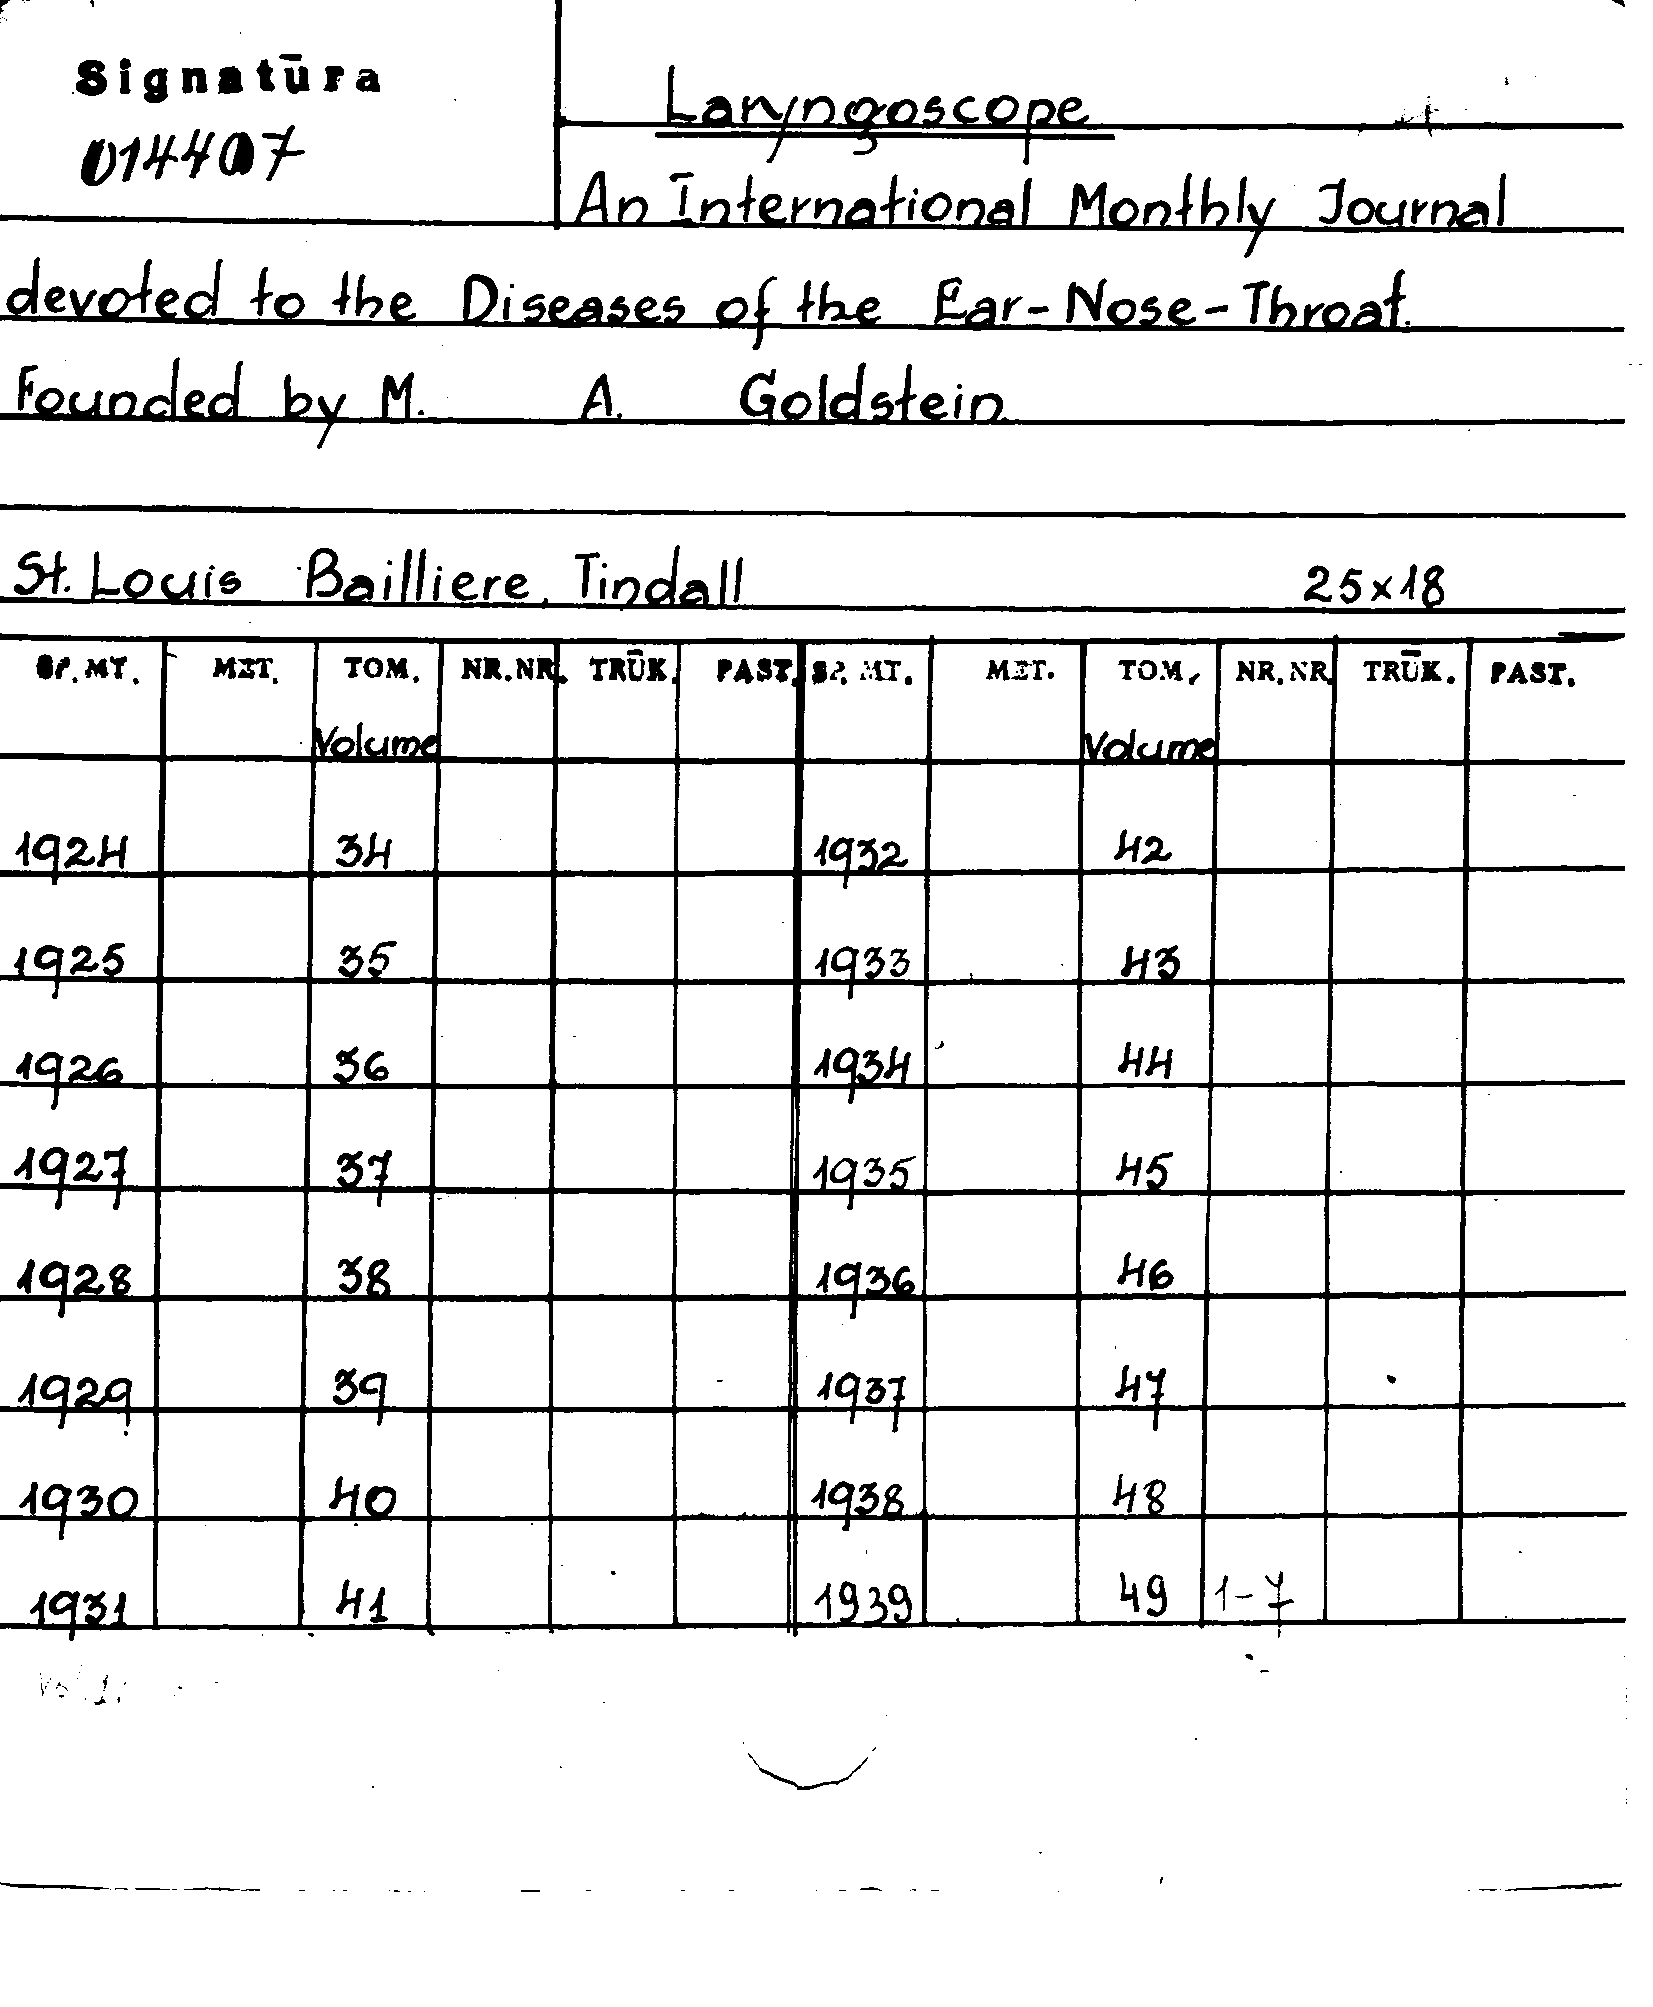 Signatūra
014407
Laryngoscope
An International Monthly Journal
devoted to the Diseases of the Ear-Nose-Throat.
Founded by M. A. Goldstein
St. Louis Bailliere, Tindall 25x18
SP. MT. MET. TOM. NR.NR. TRŪK. PAST. SP. MT. MET. TOM. NR.NR. TRŪK. PAST.
Volume Volume
1924 34 1932 42
1925 35 1933 43
1926 36 1934 44
1927 37 1935 45
1928 38 1936 46
1929 39 1937 47
1930 40 1938 48
1931 41 1939 49 1-7